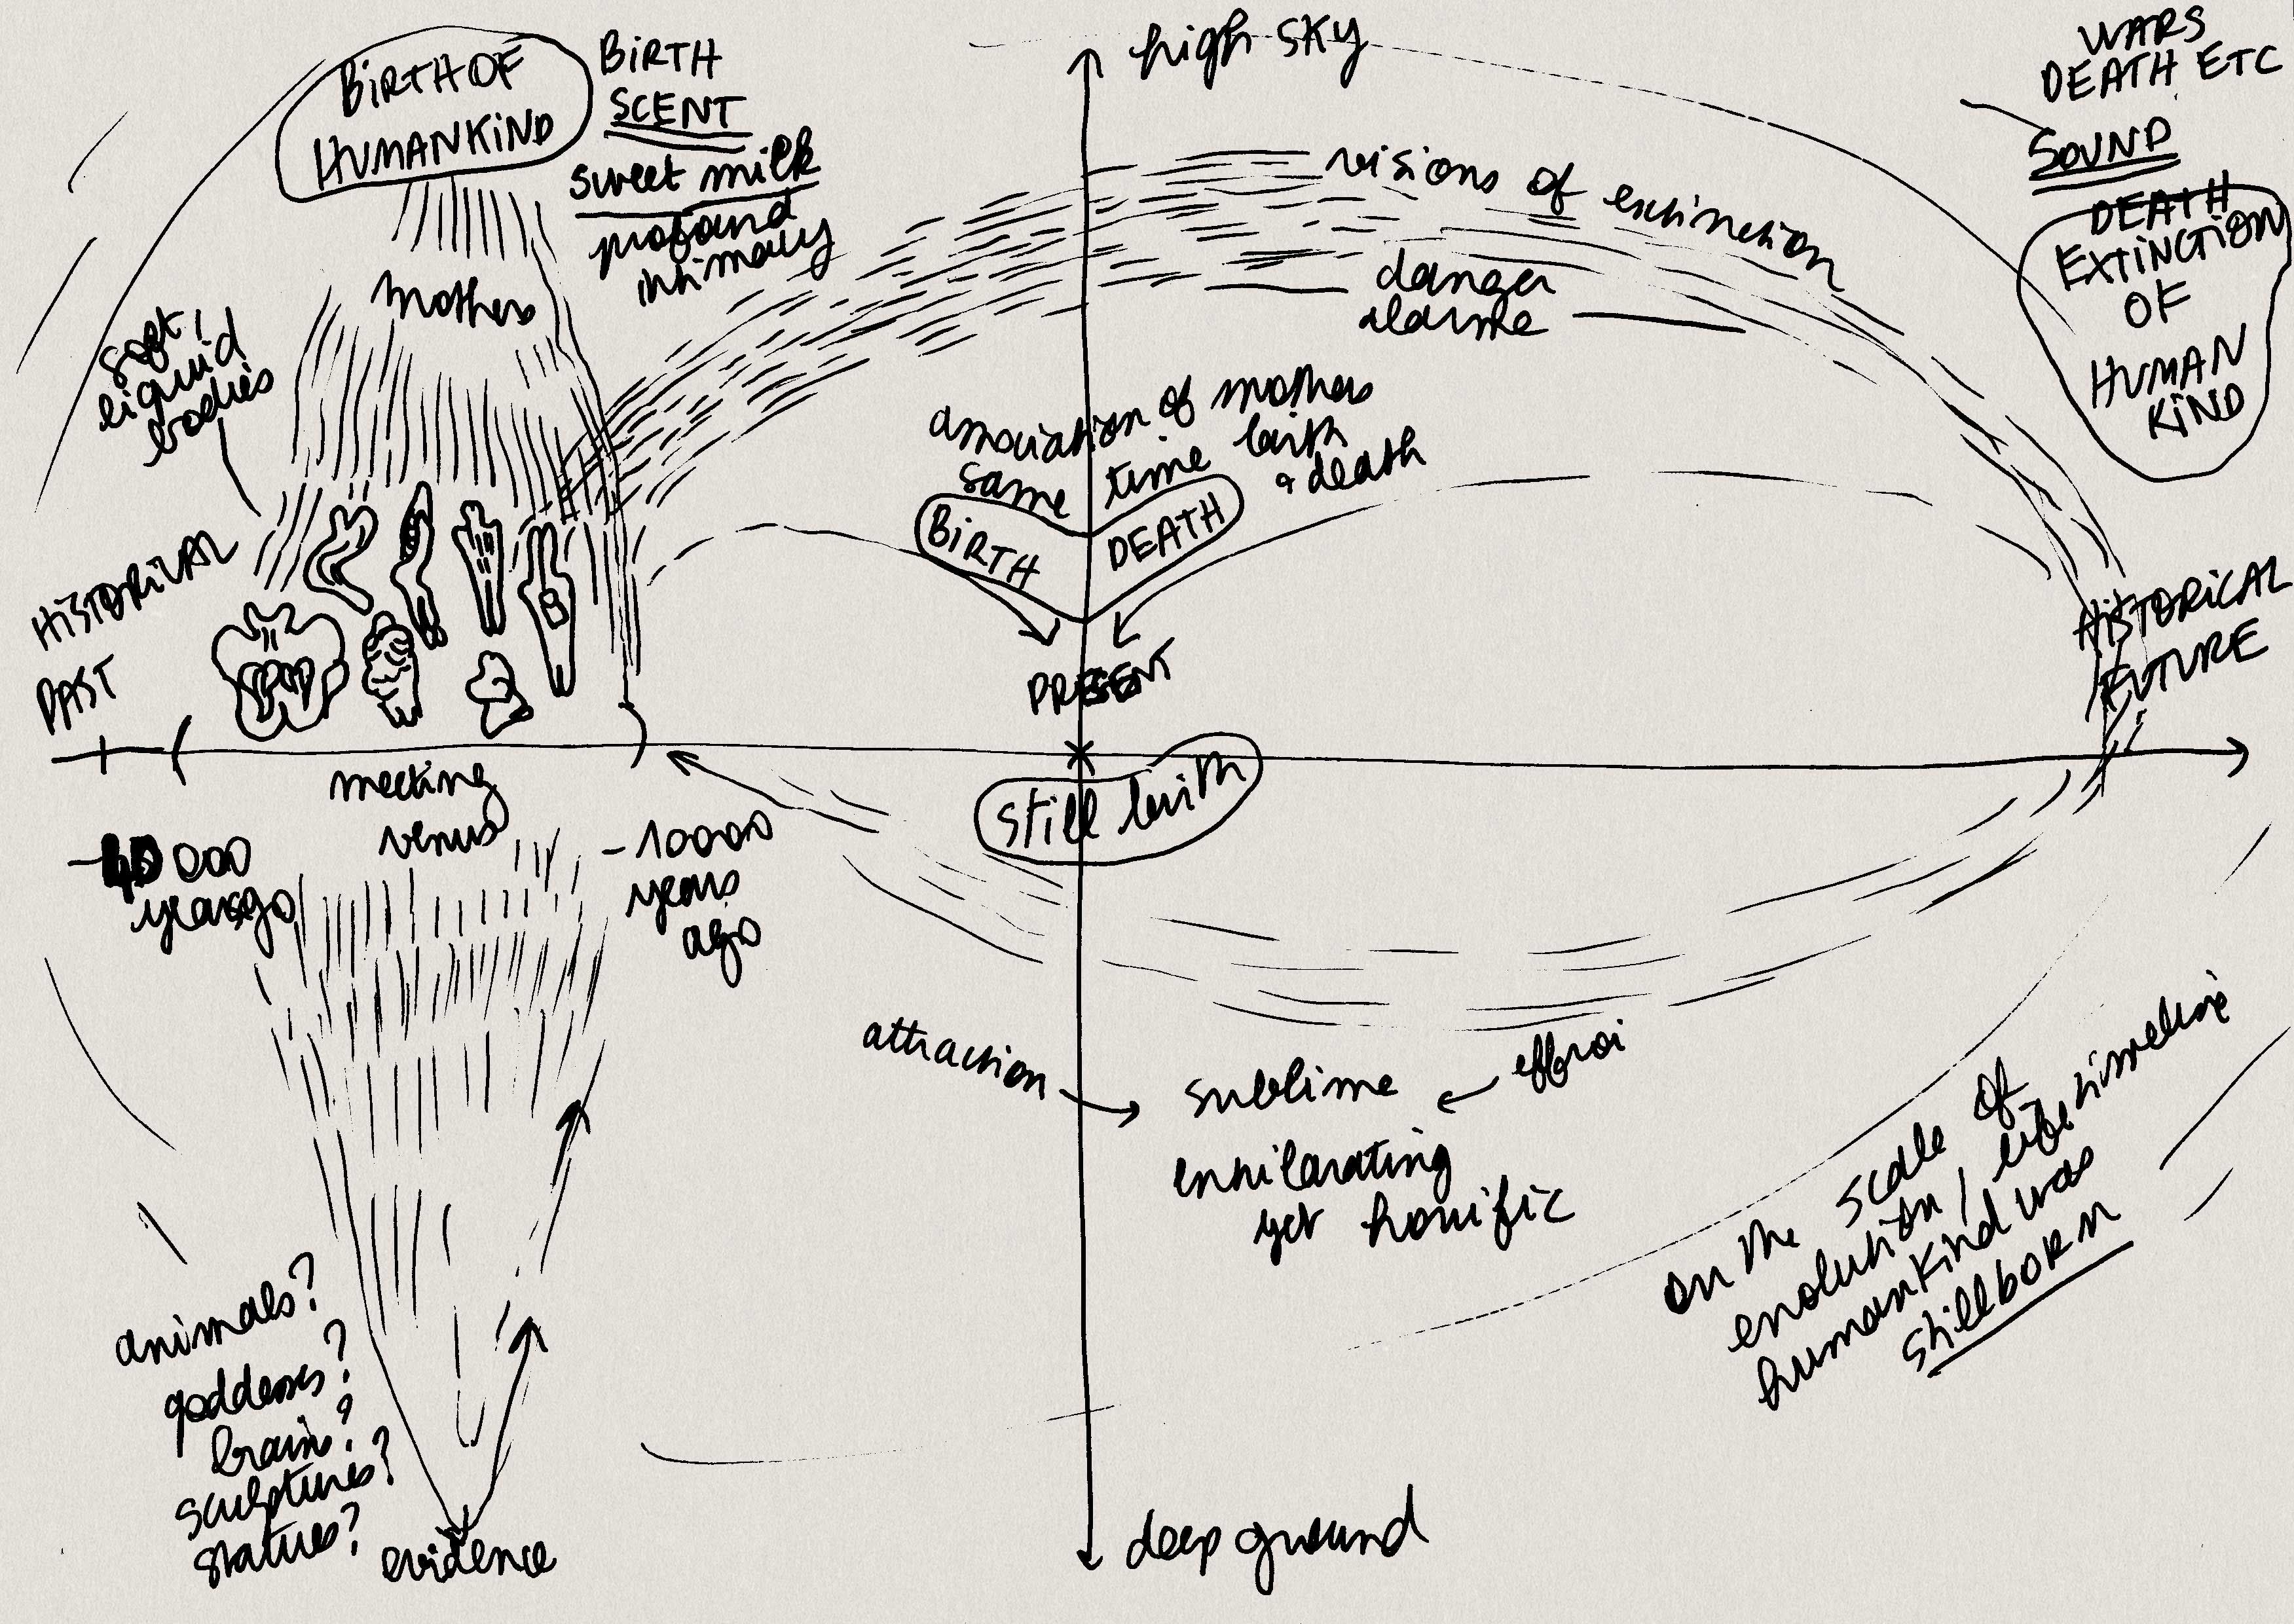 BiRTH OF
HUMANKiND
BiRTH
SCENT
sweet milk
profound
intimacy
mothers
soft,
liquid
bodies
HiSTORiCAL
PAST
meeting
venus
-40 000
years ago
-10000
years
ago
animals?
goddesses?
brains?
sculptures?
statues?
evidence
high sky
visions of extinction
danger
alarme
association of mothers
same time birth
& death
BiRTH
DEATH
PRESENT
still birth
attraction
sublime
effroi
exhilarating
yet horrific
deep ground
WARS
DEATH ETC
SOUND
DEATH
EXTiNCTiON
OF
HUMAN
KiND
HiSTORiCAL
FUTURE
on the scale of
evolution / life timeline
humankind was
stillborn